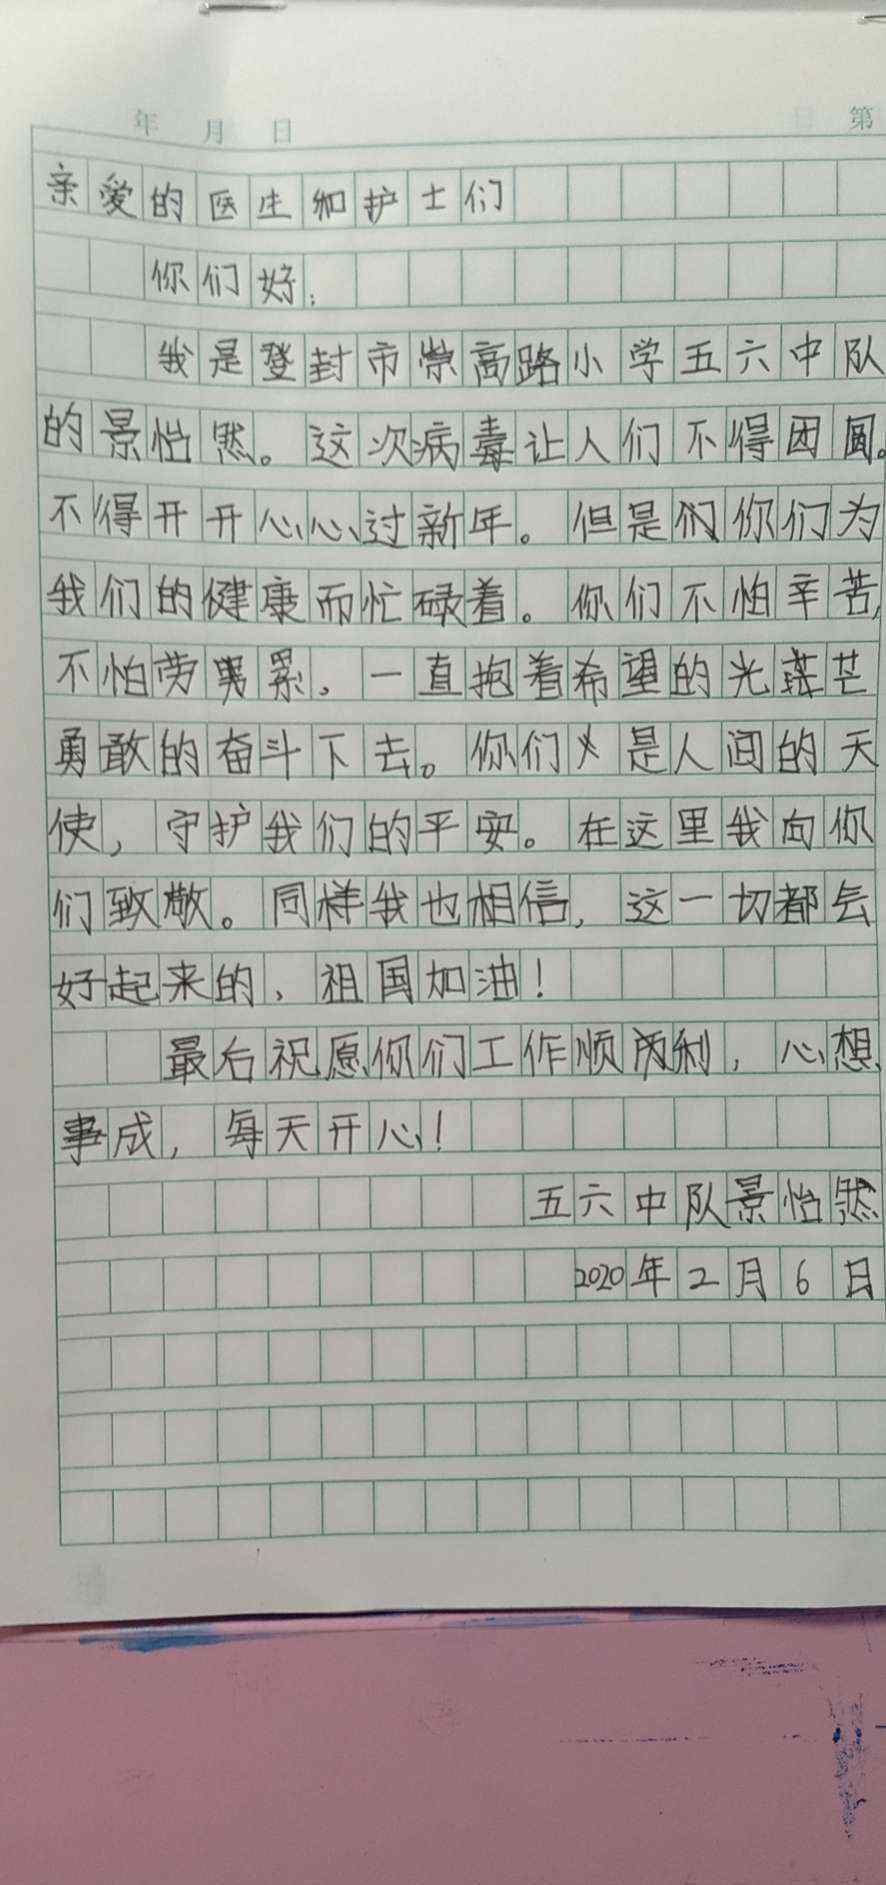 年 月 日 第
亲爱的医生和护士们
你们好:
我是登封市崇高路小学五六中队
的景怡然。这次病毒让人们不得团圆。
不得开开心心过新年。但是你们为
我们的健康而忙碌着。你们不怕辛苦,
不怕劳累,一直抱着希望的光芒
勇敢的奋斗下去。你们是人间的天
使,守护我们的平安。在这里我向你
们致敬。同样我也相信,这一切都会
好起来的,祖国加油!
最后祝愿你们工作顺利,心想
事成,每天开心!
五六中队景怡然
2020年2月6日